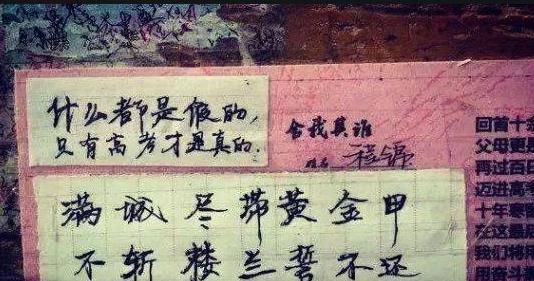 什么都是假的,
只有高考才是真的.
舍我其谁
满城尽带黄金甲
不斩楼兰誓不还
回首十余
父母更是
再过百日
迈进高
十年寒
在这最
我们将
用奋斗